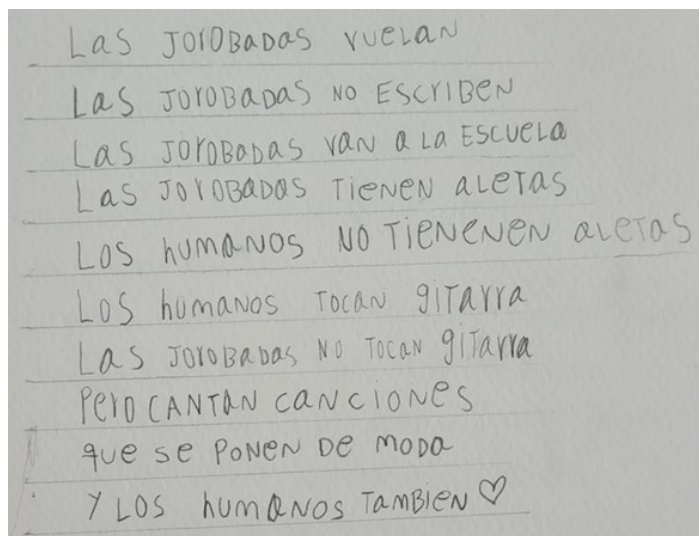 Las JoroBadas vuelan
Las JoroBadas NO ESCriBeN
Las JoroBaDas vaN a La ESCueLa
Las JoroBaDas TieNeN aLeTas
Los humaNos NO TieNeNeN aLeTas
Los humaNos TocaN giTarra
Las JoroBaDas NO TocaN giTarra
Pero CANTaN caNcioNes
que se PoNeN De moDa
Y Los humaNos TamBieN ♡